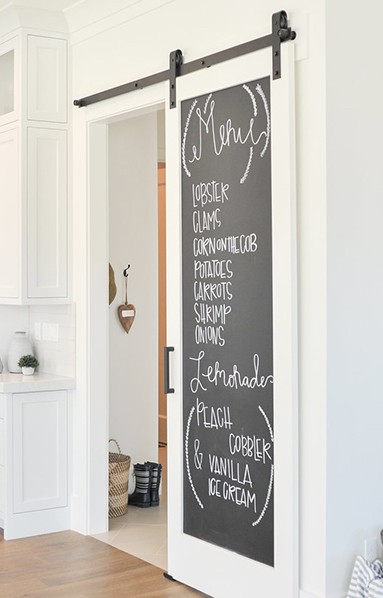 Menu
LOBSTER
CLAMS
CORN ON THE COB
POTATOES
CARROTS
SHRIMP
ONIONS
Lemonade
PEACH
COBBLER
& VANILLA
ICE CREAM